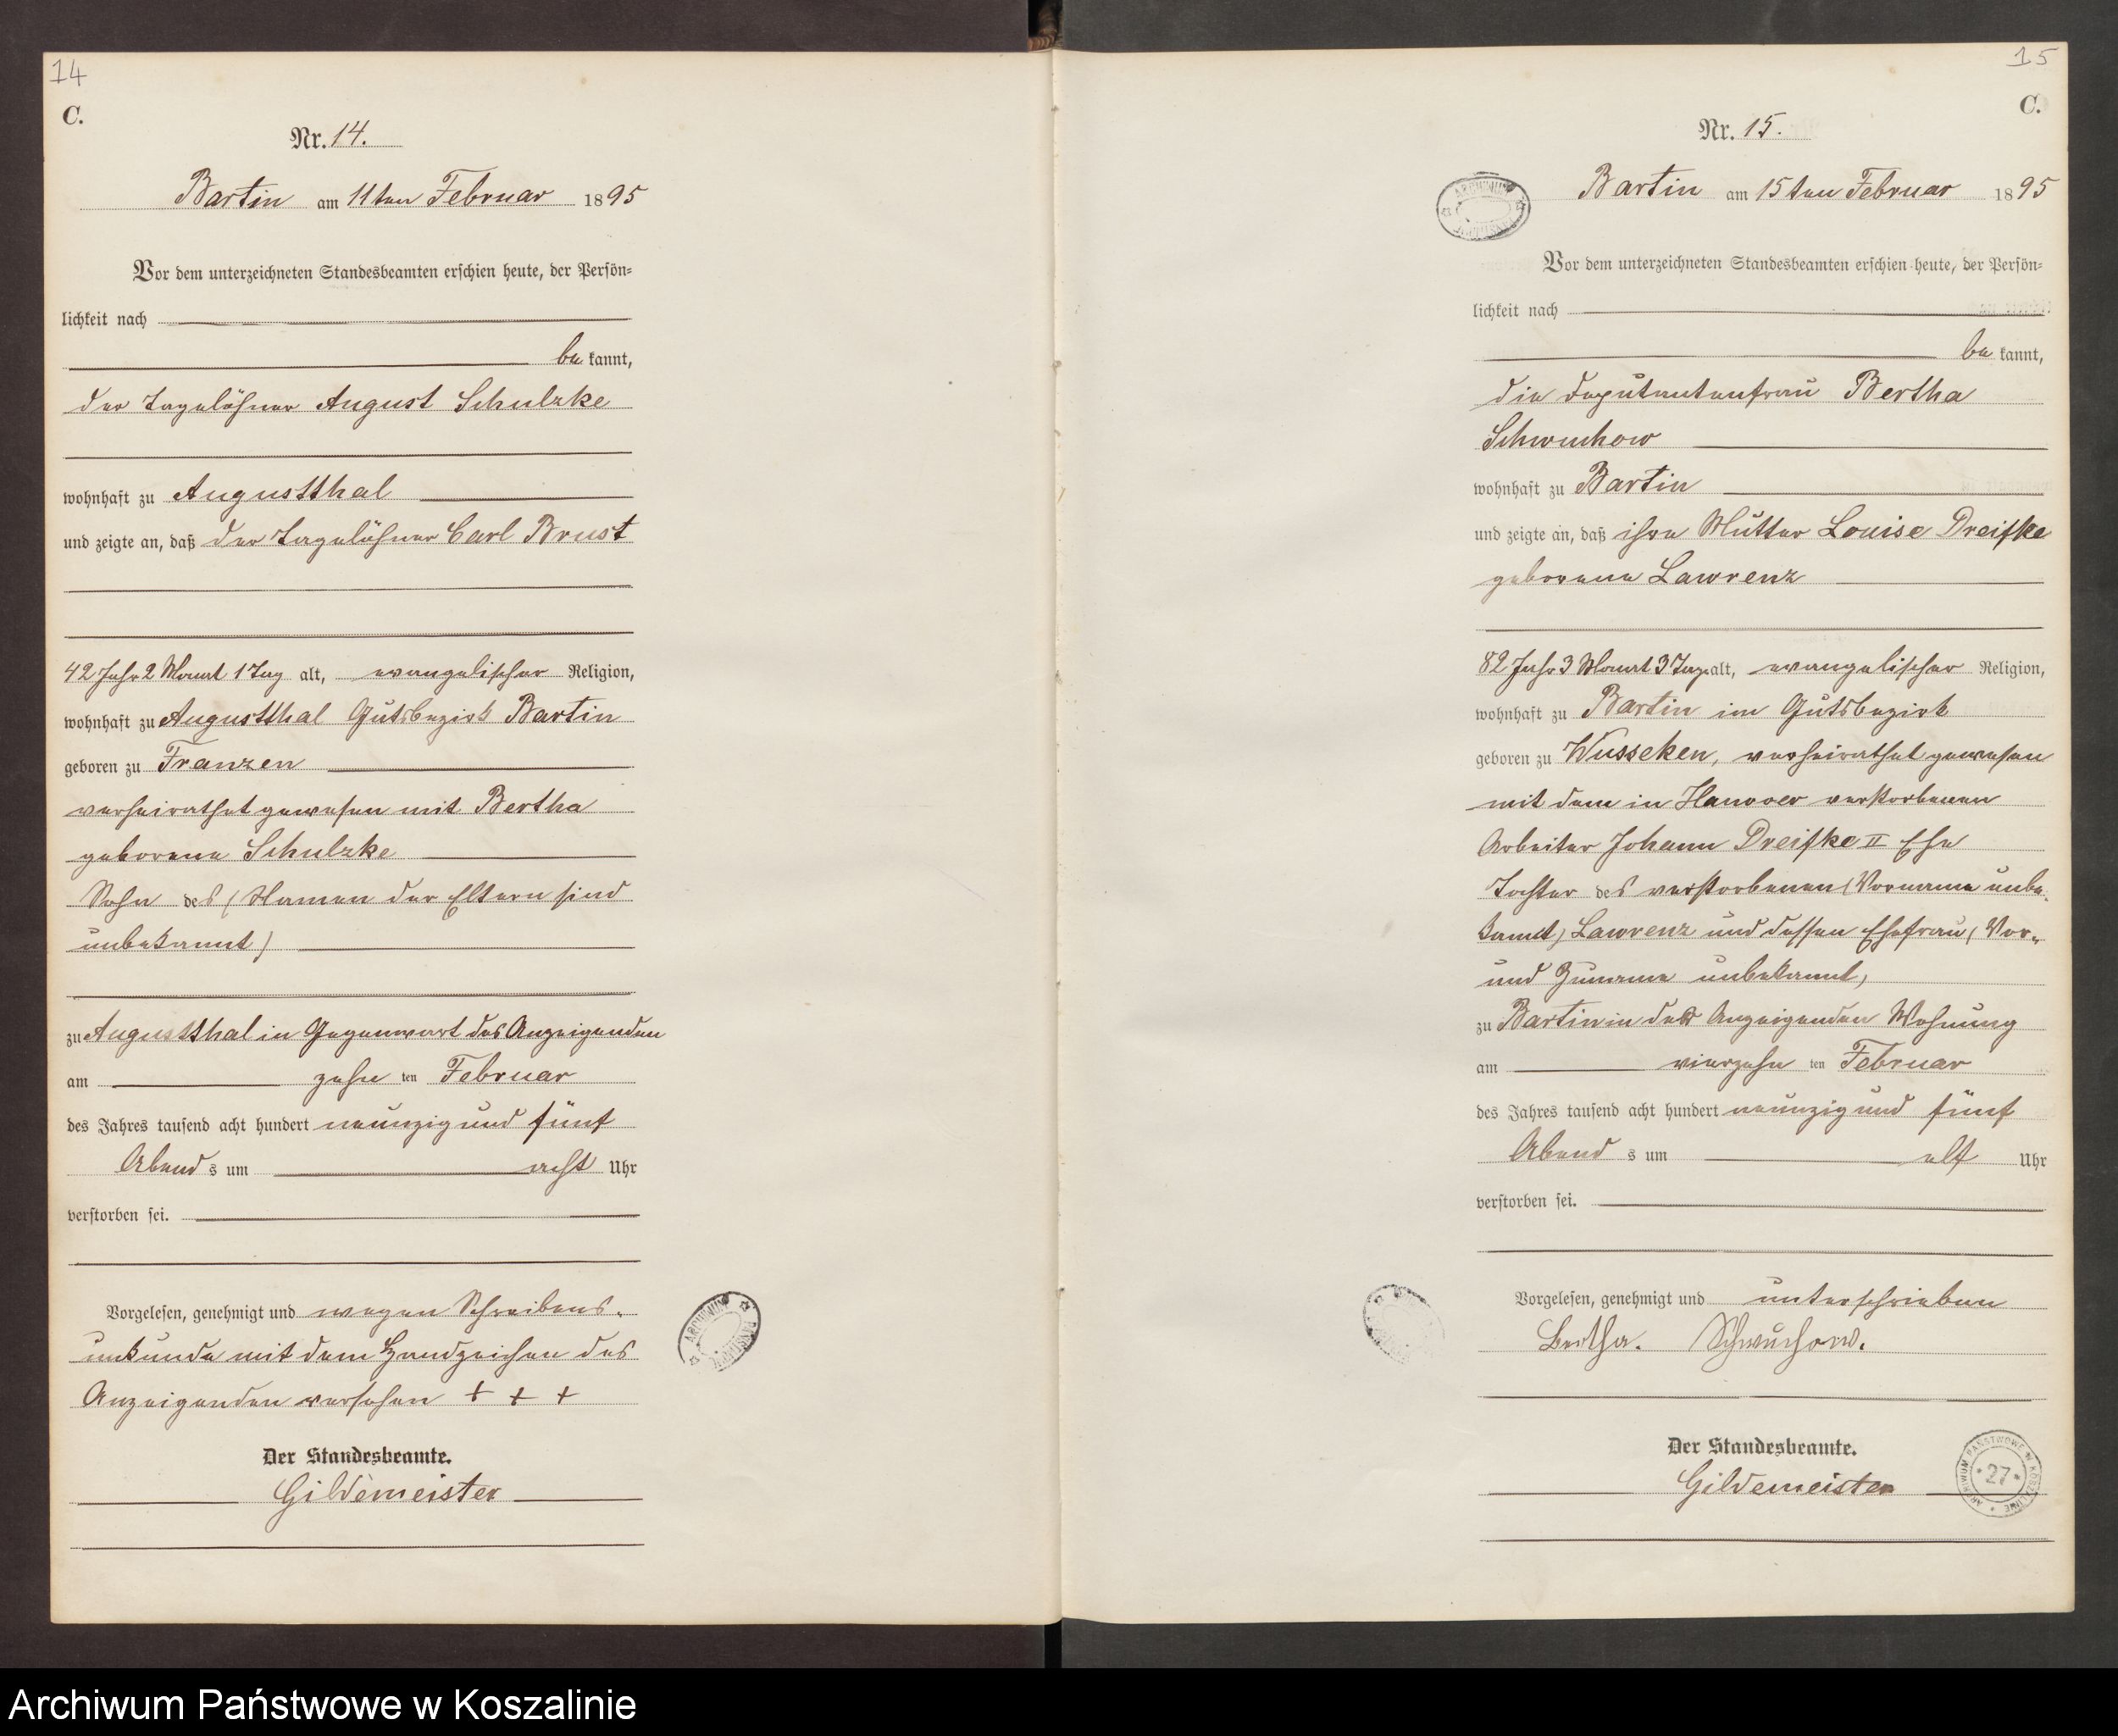 14
C.
Nr. 14.
Bartin am 11ten Februar 1895
Vor dem unterzeichneten Standesbeamten erschien heute, der Persön-
lichkeit nach
bekannt,
der Tagelöhner August Schulzke
wohnhaft zu Augustthal
und zeigte an, daß der Tagelöhner Carl Brust
42 Jahr 2 Monat 1 Tag alt, evangelischer Religion,
wohnhaft zu Augustthal Gutsbezirk Bartin
geboren zu Franzen
verheirathet gewesen mit Bertha
geborene Schulzke
Sohn des (Namen der Eltern sind
unbekannt)
zu Augustthal in Gegenwart des Anzeigenden
am zehnten Februar
des Jahres tausend acht hundert neunzig und fünf
Abends um acht Uhr
verstorben sei.
Vorgelesen, genehmigt und wegen Schreibens-
unkunde mit dem Handzeichen des
Anzeigenden versehen + + +
Der Standesbeamte.
Gildemeister
15
C.
Nr. 15.
Bartin am 15ten Februar 1895
Vor dem unterzeichneten Standesbeamten erschien heute, der Persön-
lichkeit nach
bekannt,
die Deputantenfrau Bertha
Schwuchow
wohnhaft zu Bartin
und zeigte an, daß ihre Mutter Louise Dreifke
geborene Lawrenz
82 Jahr 3 Monat 3 Tage alt, evangelischer Religion,
wohnhaft zu Bartin im Gutsbezirk
geboren zu Wusseken, verheirathet gewesen
mit dem in Hanover verstorbenen
Arbeiter Johann Dreifke II Ehe
Tochter des verstorbenen (Vorname unbe-
kannt) Lawrenz und dessen Ehefrau (Vor-
und Zuname unbekannt)
zu Bartin in der Anzeigenden Wohnung
am vierzehnten Februar
des Jahres tausend acht hundert neunzig und fünf
Abends um elf Uhr
verstorben sei.
Vorgelesen, genehmigt und unterschrieben
Bertha. Schwuchow.
Der Standesbeamte.
Gildemeister
ARCHIWUM PAŃSTWOWE W KOSZALINIE
27
Archiwum Państwowe w Koszalinie